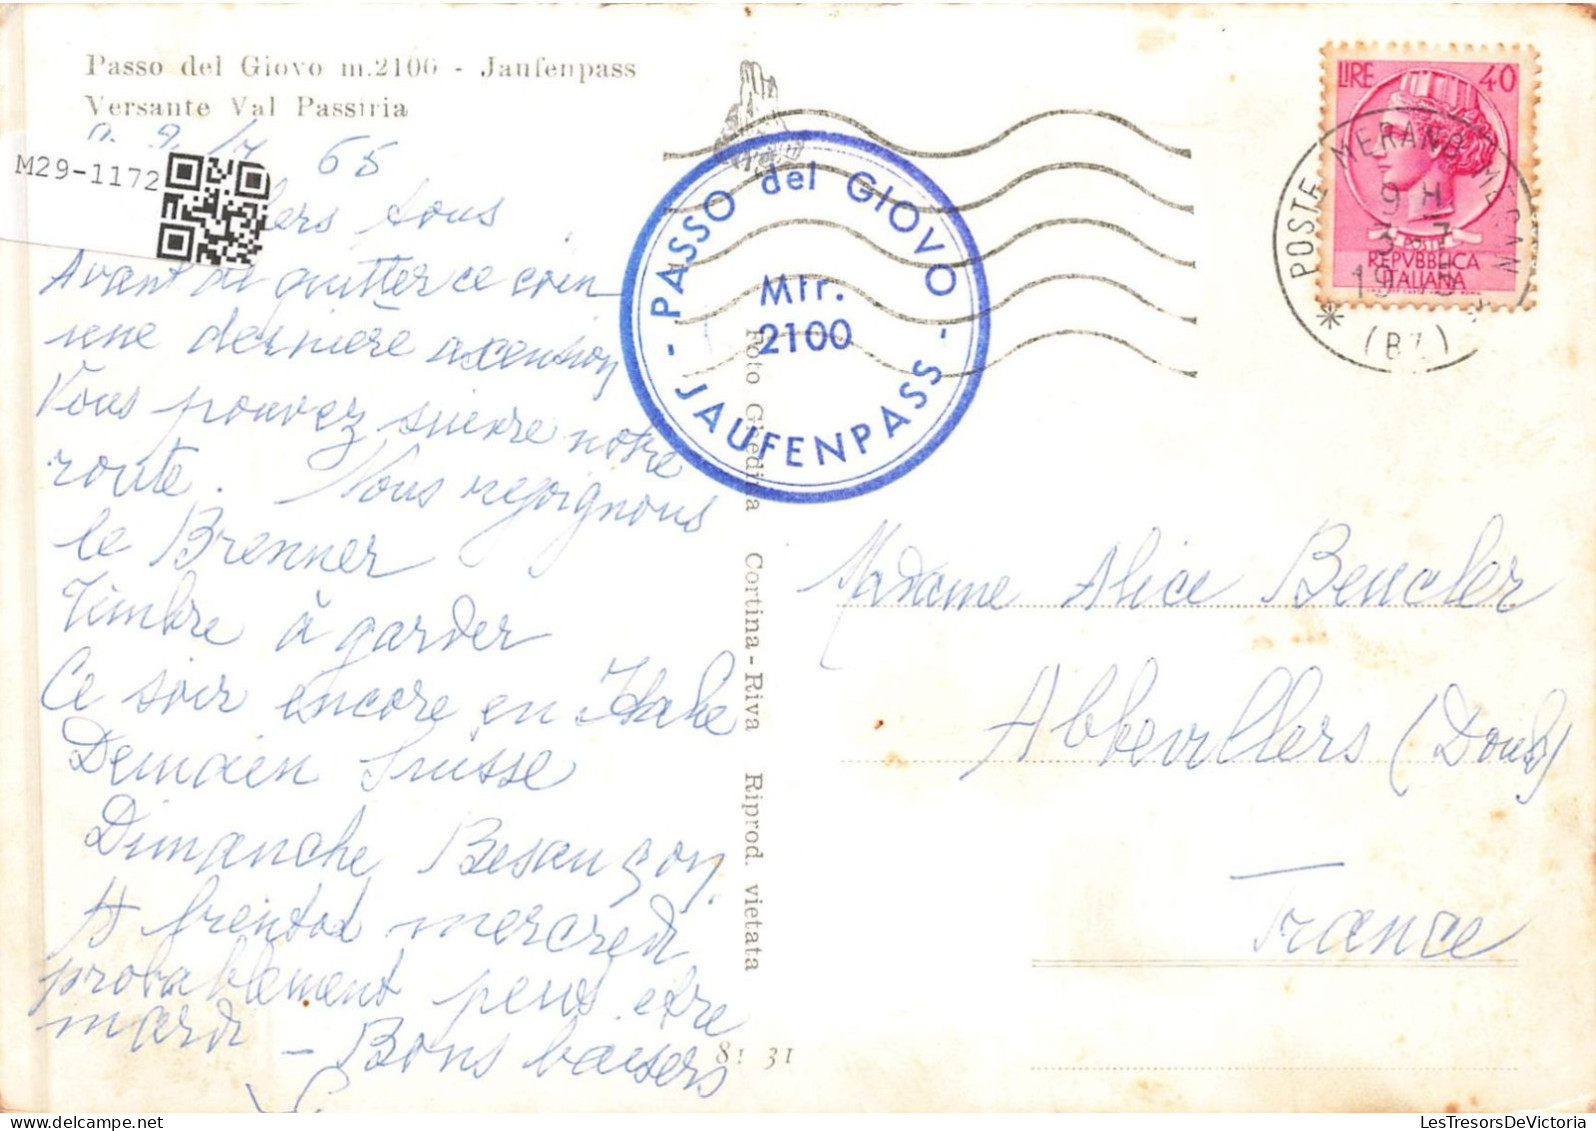 Passo del Giovo m.2100 - Jaufenpass
Versante Val Passiria
65
M29-1172
tous
Avant de quitter ce coin
une dernière axension
Vous pouvez suivre notre
route. Nous rejoignons
le Brenner
Timbre à garder
Ce soir encore en Italie
Demain Suisse
Dimanche Besançon.
mercredi
probablement peus etre
mardi - Bons baisers
Foto Ghedina Cortina-Riva Riprod. vietata
81 31
PASSO del GIOVO
Mtr.
2100
- JAUFENPASS -
LIRE 40
POSTE
REPVBBLICA
ITALIANA
POSTE MERANO MERAN
9 H
3 7
(BZ)
Madame Alice Beucler
Abbevillers (Doubs)
France
LesTresorsDeVictoria.com